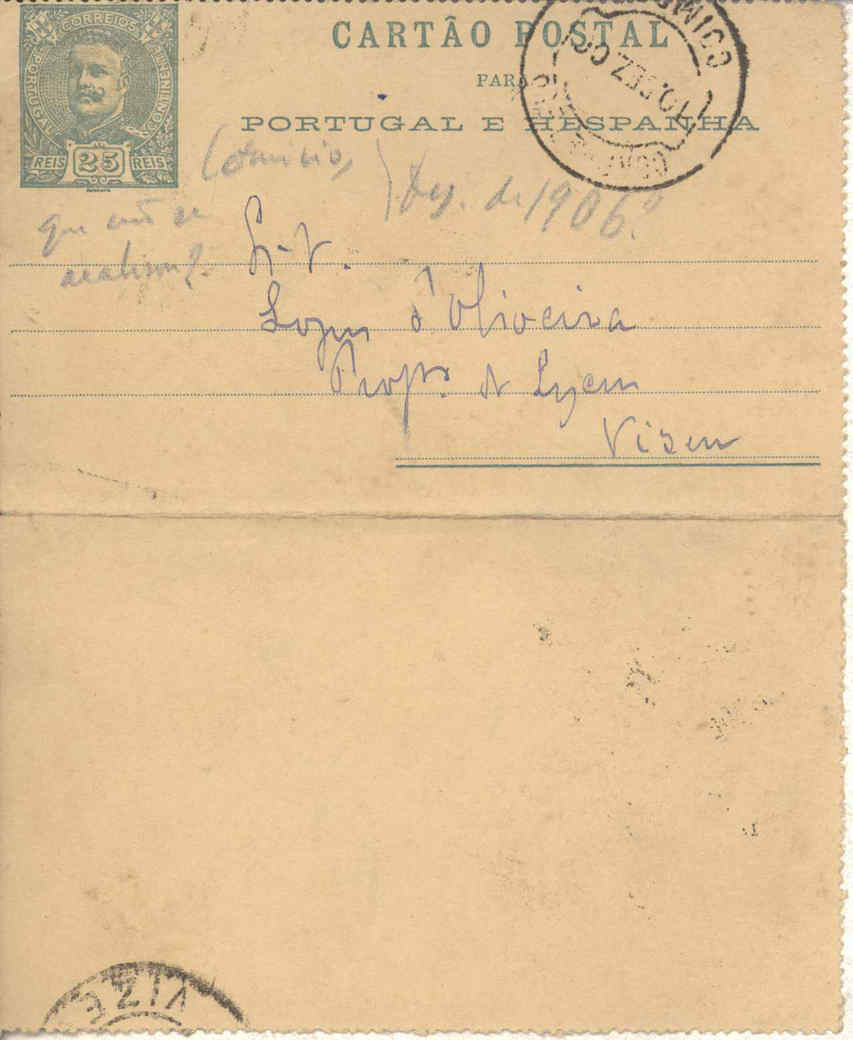 CORREIOS
PORTUGAL CONTINENTE
REIS 25 REIS
CARTÃO POSTAL
PARA
PORTUGAL E HESPANHA
10.DEZ.06
(Comicio,
que não se
realisou?
Dez. de 1906.
Lopes d'Oliveira
Profor. do Lyceu
Viseu
VIZE